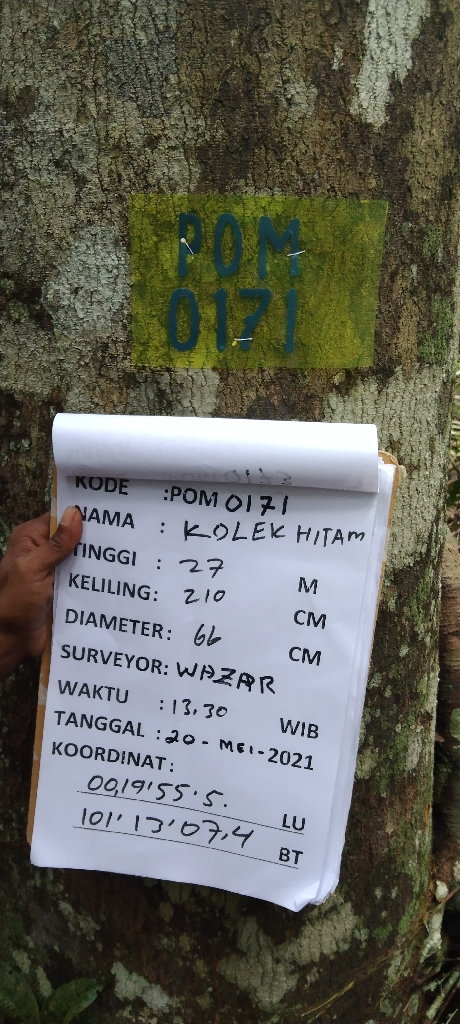 POM
0171
KODE :POM 0171
NAMA : KOLEK HITAM
TINGGI : 27 M
KELILING: 210 CM
DIAMETER: 66 CM
SURVEYOR: WAZAR
WAKTU : 13.30 WIB
TANGGAL : 20 - MEI - 2021
KOORDINAT:
00,19'55'5. LU
101' 13'07,4 BT